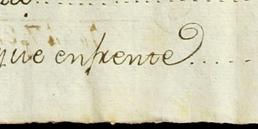 que enfrente.....